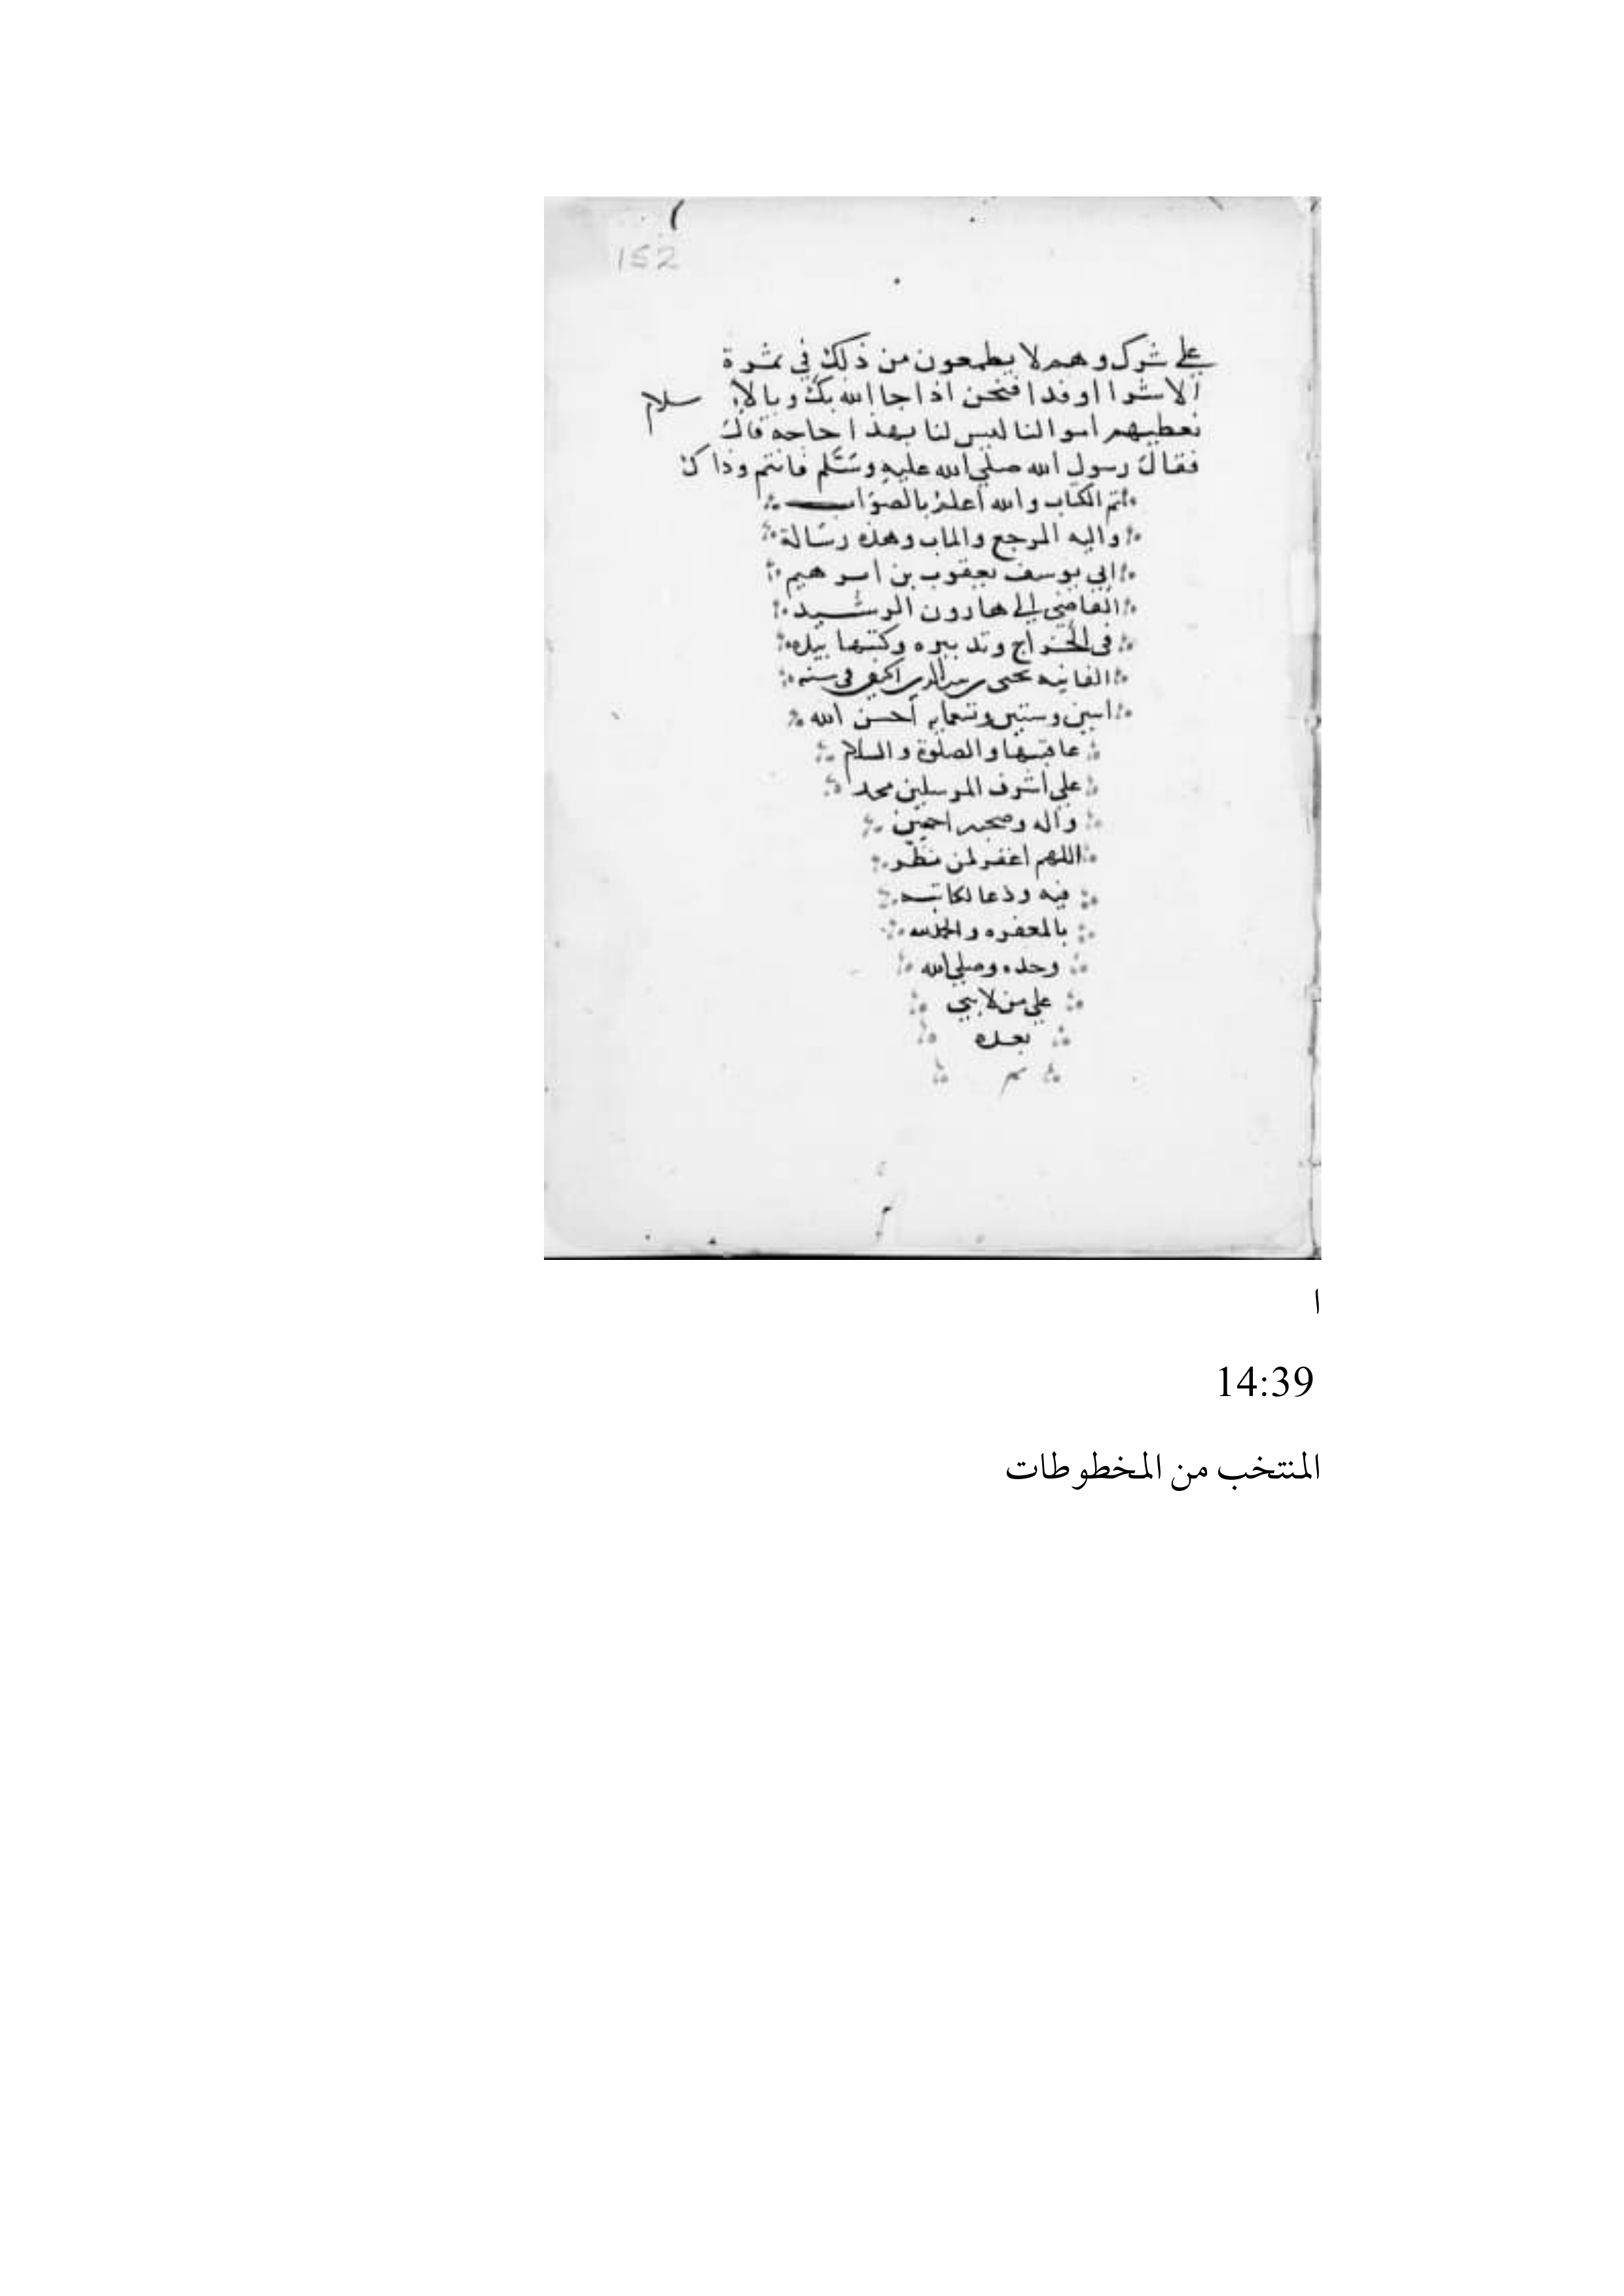 152
على شرك وهم لا يطمعون من ذلك في ثمرة
الا شرا او فدا فنحن اذا جا الله بك وبالا سلام
نعطيهم اموالنا ليس لنا بهذا حاجة قال
فقال رسول الله صلي الله عليه وسلم فانتم وذاك
تم الكتاب والله اعلم بالصواب
واليه المرجع والماب وهذه رسالة
ابي يوسف يعقوب بن ابرهيم
القاضي الي هارون الرشيد
في الخراج وتدبيره وكتبها بيده
الفانيه يحيى الحنفي في سنه
اثنين وستين وتسعمايه احسن الله
عاقبتها والصلوة والسلام
علي اشرف المرسلين محمد
واله وصحبه اجمعين
اللهم اغفر لمن نظر
فيه ودعا لكاتبه
بالمغفره والحمد لله
وحده وصلي الله
علي من لا نبي
بعده
ا
14:39
المنتخب من المخطوطات